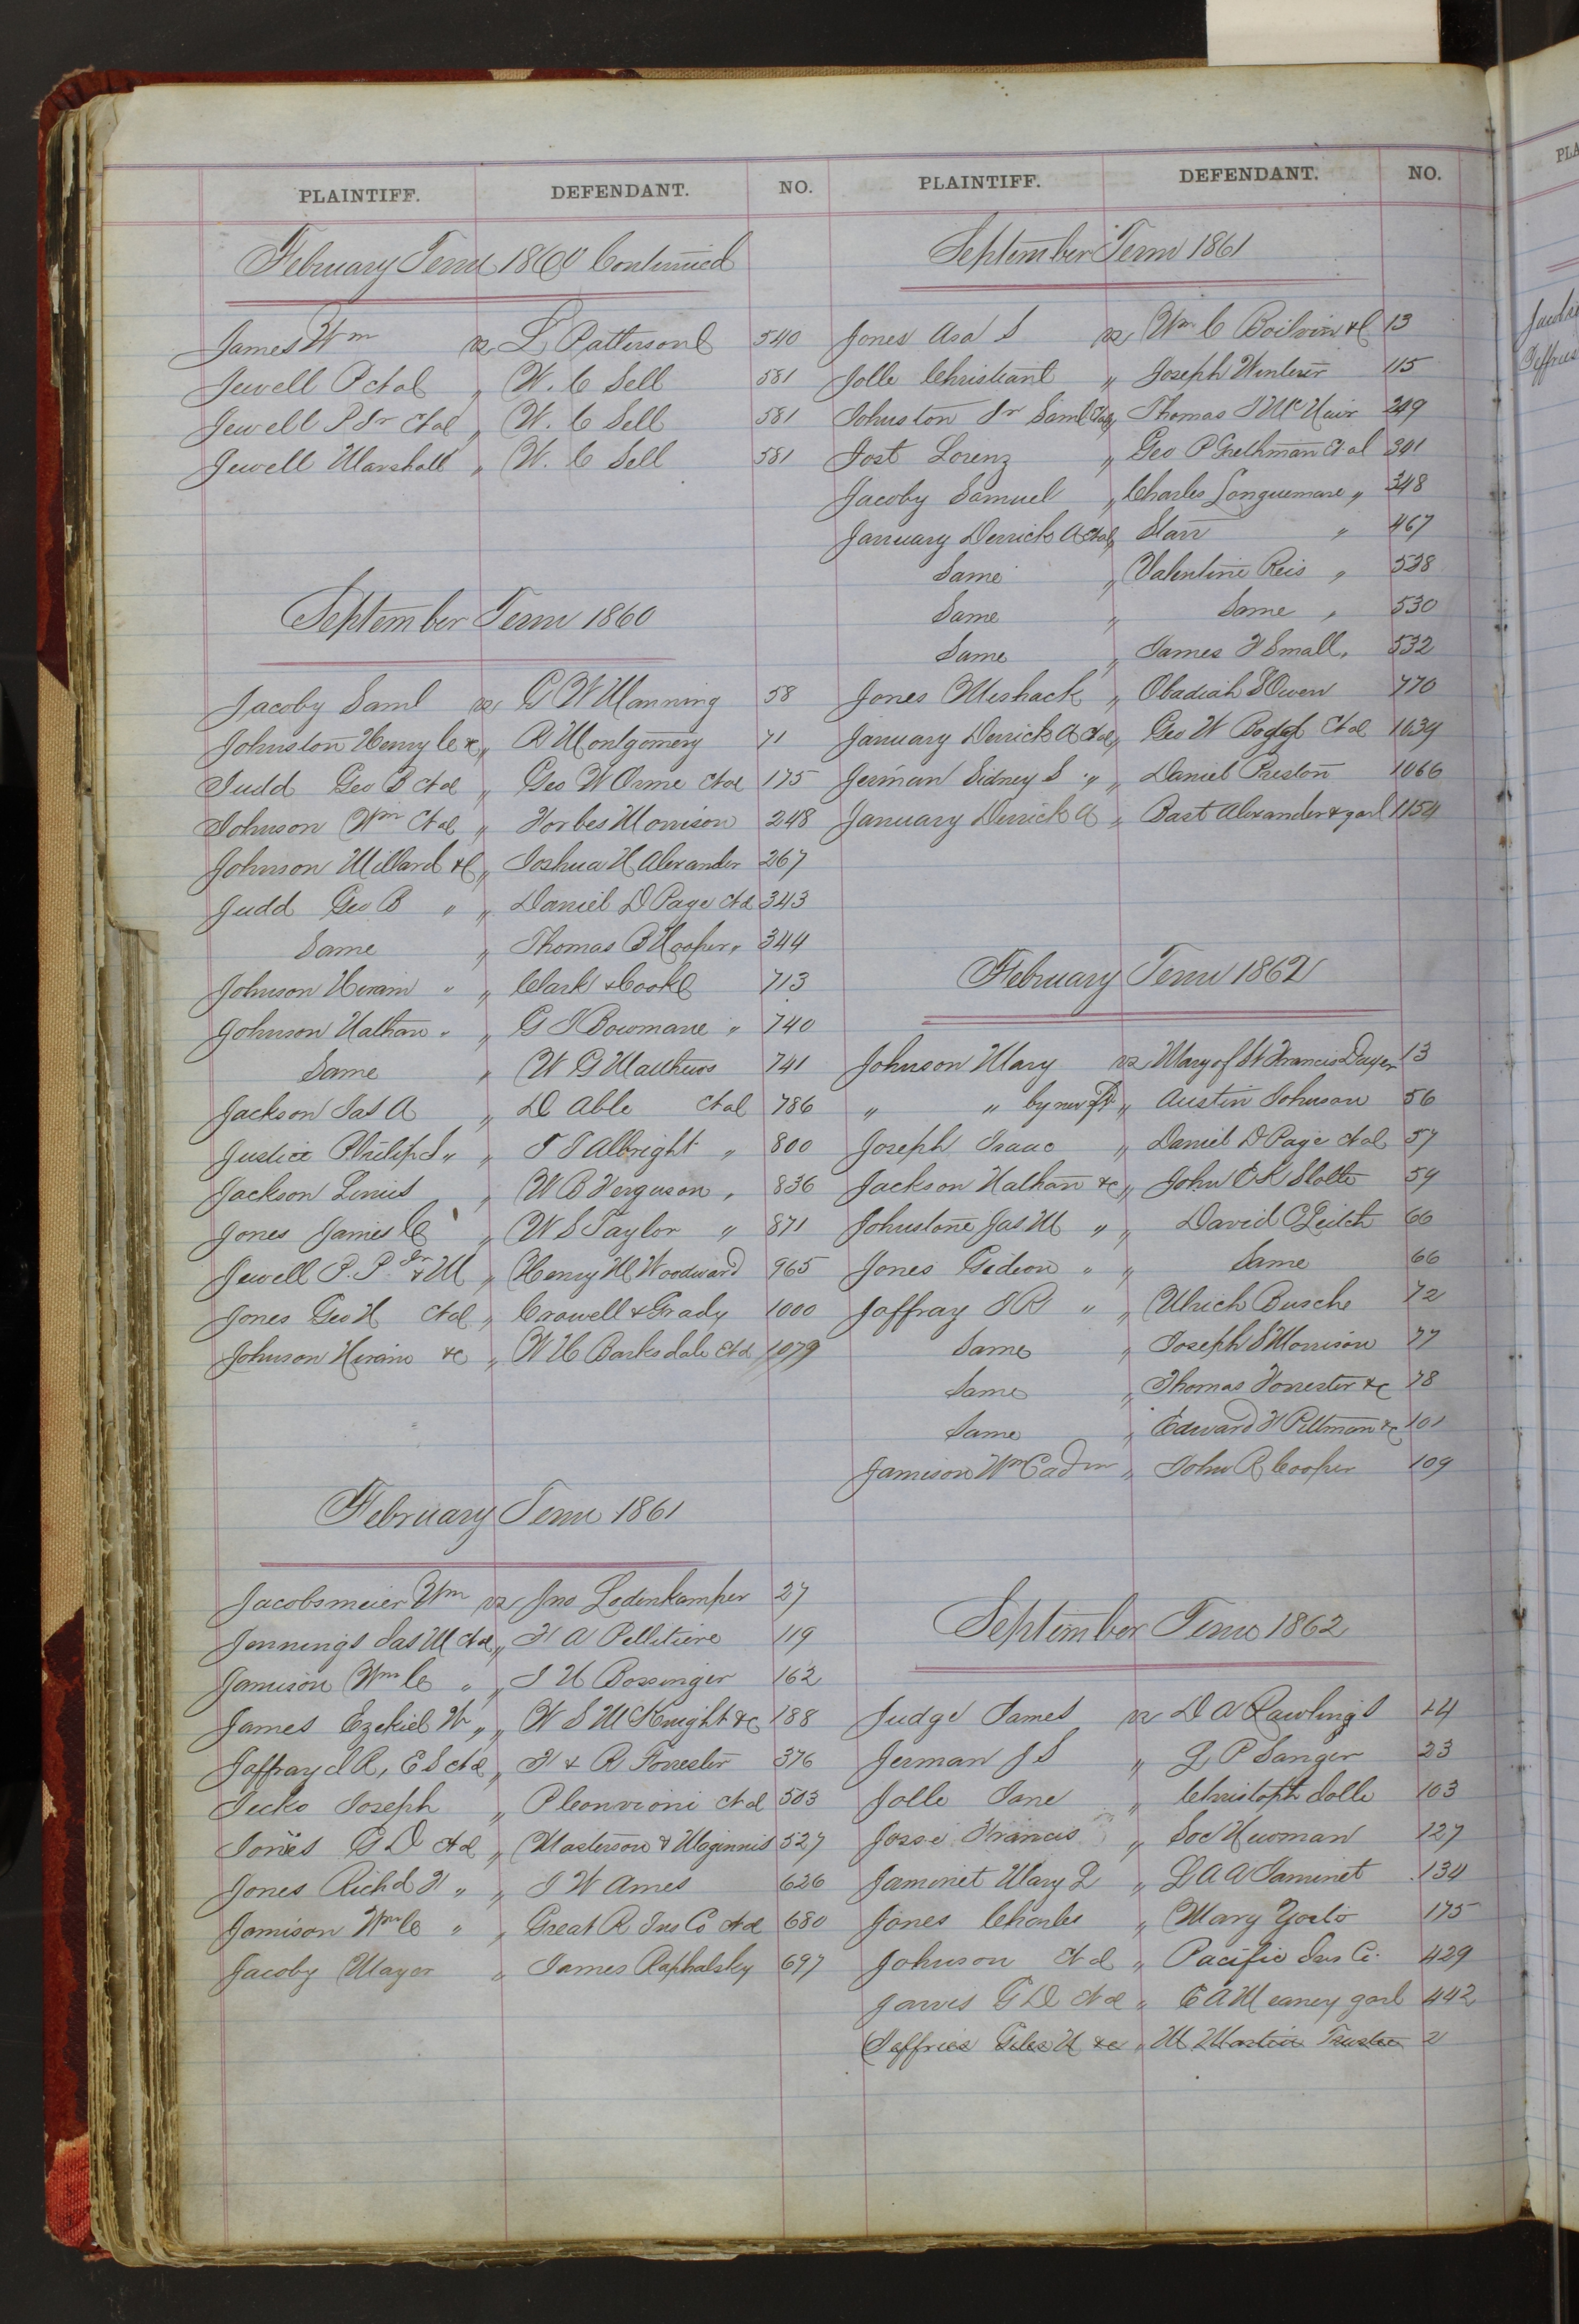 PLAINTIFF. DEFENDANT. NO.
February Term 1860 Continued
James Wm vs L Patterson 540
Jewell P et al " W. C Sell 581
Jewell P Sr et al " W. C Sell 581
Jewell Marshall " W. C Sell 581
September Term 1860
Jacoby Saml vs G W Manning 58
Johnston Henry C &c " R Montgomery 71
Judd Geo B et al " Geo W Orme et al 175
Johnson Wm et al " Forbes Morrison 248
Johnson Willard &c " Joshua H Alexander 267
Judd Geo B " " Daniel D Page et al 343
Same " Thomas B Hooper " 344
Johnson Hiram " " Clark & Cook 713
Johnson Nathan " " G J Bowmane " 740
Same " W G Matthews 741
Jackson Jas A " D Able et al 786
Justice Philip S " " T J Albright " 800
Jackson Linus " W B Ferguson " 836
Jones James C " W S Taylor " 871
Jewell P. P. Jr & M " Henry M Woodward 965
Jones Geo H et al " Crowell & Grady 1000
Johnson Hiram &c " W H Barksdale et al 1079
February Term 1861
Jacobsmeier Wm vs Jno Lodenkamper 27
Jennings Jas M et al " F A Pelletiere 119
Jamison Wm C " " J H Bossinger 162
James Ezekiel W " " W S McKnight &c 188
Jaffray J R, E S et al " F & R Forrester 376
Jecko Joseph " P et al 503
Jones G D et al " Masterson & Maginnis 527
Jones Richd F " " J W Ames 626
Jamison Wm C " " Great R Ins Co et al 680
Jacoby Mayer " James Raphalsky 697
PLAINTIFF. DEFENDANT. NO.
September Term 1861
Jones Asa S vs Wm C Boilvin &c 13
Jolle Christian " Joseph Winterer 115
Johnston Jr Saml " Thomas J McNair 249
Jost Lorenz " Geo P Grethman et al 301
Jacoby Samuel " Charles Longuemare " 348
January Derrick A et al " Starr " 467
Same " Valentine Reis " 528
Same " Same " 530
Same " James F Small " 532
Jones Meshack " Obadiah S Owen 770
January Derrick A et al " Geo W et al 1039
Jerman Sidney S " " Daniel Preston 1066
January Derrick A " Bast Alexander & garl 1154
February Term 1862
Johnson Mary vs Mary of St Francis 13
" " by " Austin Johnson 56
Joseph Isaac " Daniel D Page et al 57
Jackson Nathan &c " John O K Slotte 59
Johnstone Jas M " " David C Leitch 66
Jones Gideon " " Same 66
Jaffray J R " " Ulrich Busche 72
Same " Joseph S Morrison 77
Same " Thomas Forrester &c 78
Same " Edward F Pittman &c 101
Jamison Wm C adm " John R Cooper 109
September Term 1862
Judge James vs D A Rawlings 14
Jerman J S " L P Sanger 23
Jolle Jane " Christoph Jolle 103
Josse Francis " Soc Newman 127
Jaminet Mary L " L A A Jaminet 134
Jones Charles " Mary 175
Johnson et al " Pacific Ins Co. 429
Jarvis G D et al " E A Meaney garl 442
Jeffries Giles H &c " M Martin Trustee 2
PLA